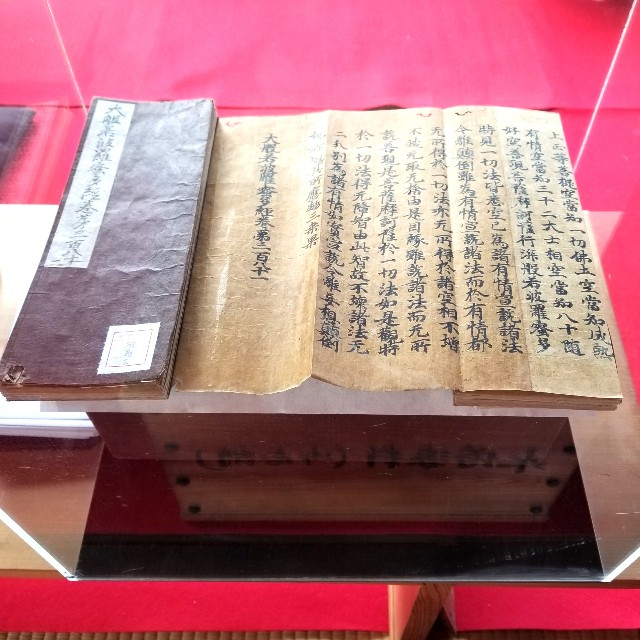 上正等菩提空當為一切佛土空當為成熟
有情空當為三十二大士相空當為八十隨
好空善現菩薩摩訶薩行深般若波羅蜜多
時見一切法皆悉空已為諸有情宣說諸法
令離顛倒雖為有情宣說諸法而於有情都
无所得於一切法亦无所得於諸空相不增
不減无取无捨由是因緣雖說諸法而无所
說善現是菩薩摩訶薩於一切法如是觀時
於一切法得无障智由此智故不壞諸法无
二无別為諸有情如實宣說令離妄想顛倒
趣三乘果
大般若波羅蜜多經卷第三百八十一
大般若波羅蜜多經卷第三百八十